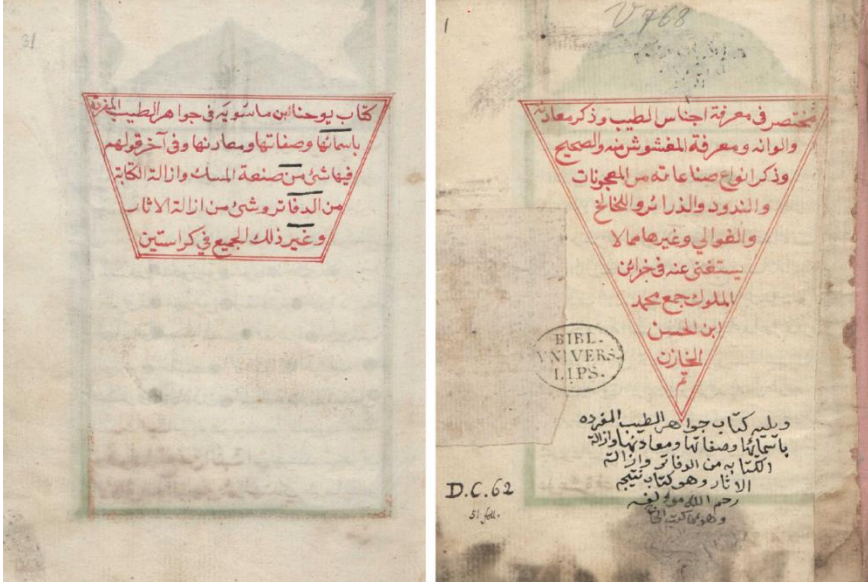 31
كتاب يوحنا ابن ماسويه فى جواهر الطيب المفرده
باسمائها وصفاتها ومعادنها وفى آخر قولهم
فيها شئ من صنعة المسك وازالة الكتابة
من الدفاتر وشئ من ازالة الاثار
وغير ذلك الجميع في كراستين
1
V 768
مختصر فى معرفة اجناس الطيب وذكر معادنه
والوانه ومعرفة المغشوش منه والصحيح
وذكر انواع صناعاته من المعجونات
والندود والذرائر واللخالخ
والغوالي وغيرها مما لا
يستغنى عنه فى خزاين
الملوك جمع محمد
ابن الحسن
الخازن
تم
BIBL.
VNIVERS.
LIPS.
ويليه كتاب جواهر الطيب المفرده
باسمائها وصفاتها ومعادنها وازالة
الكتابه من الدفاتر وازالة
الاثار وهو كتاب نتيجه
رحم الله مؤلفه
D.C. 62
51 foll.